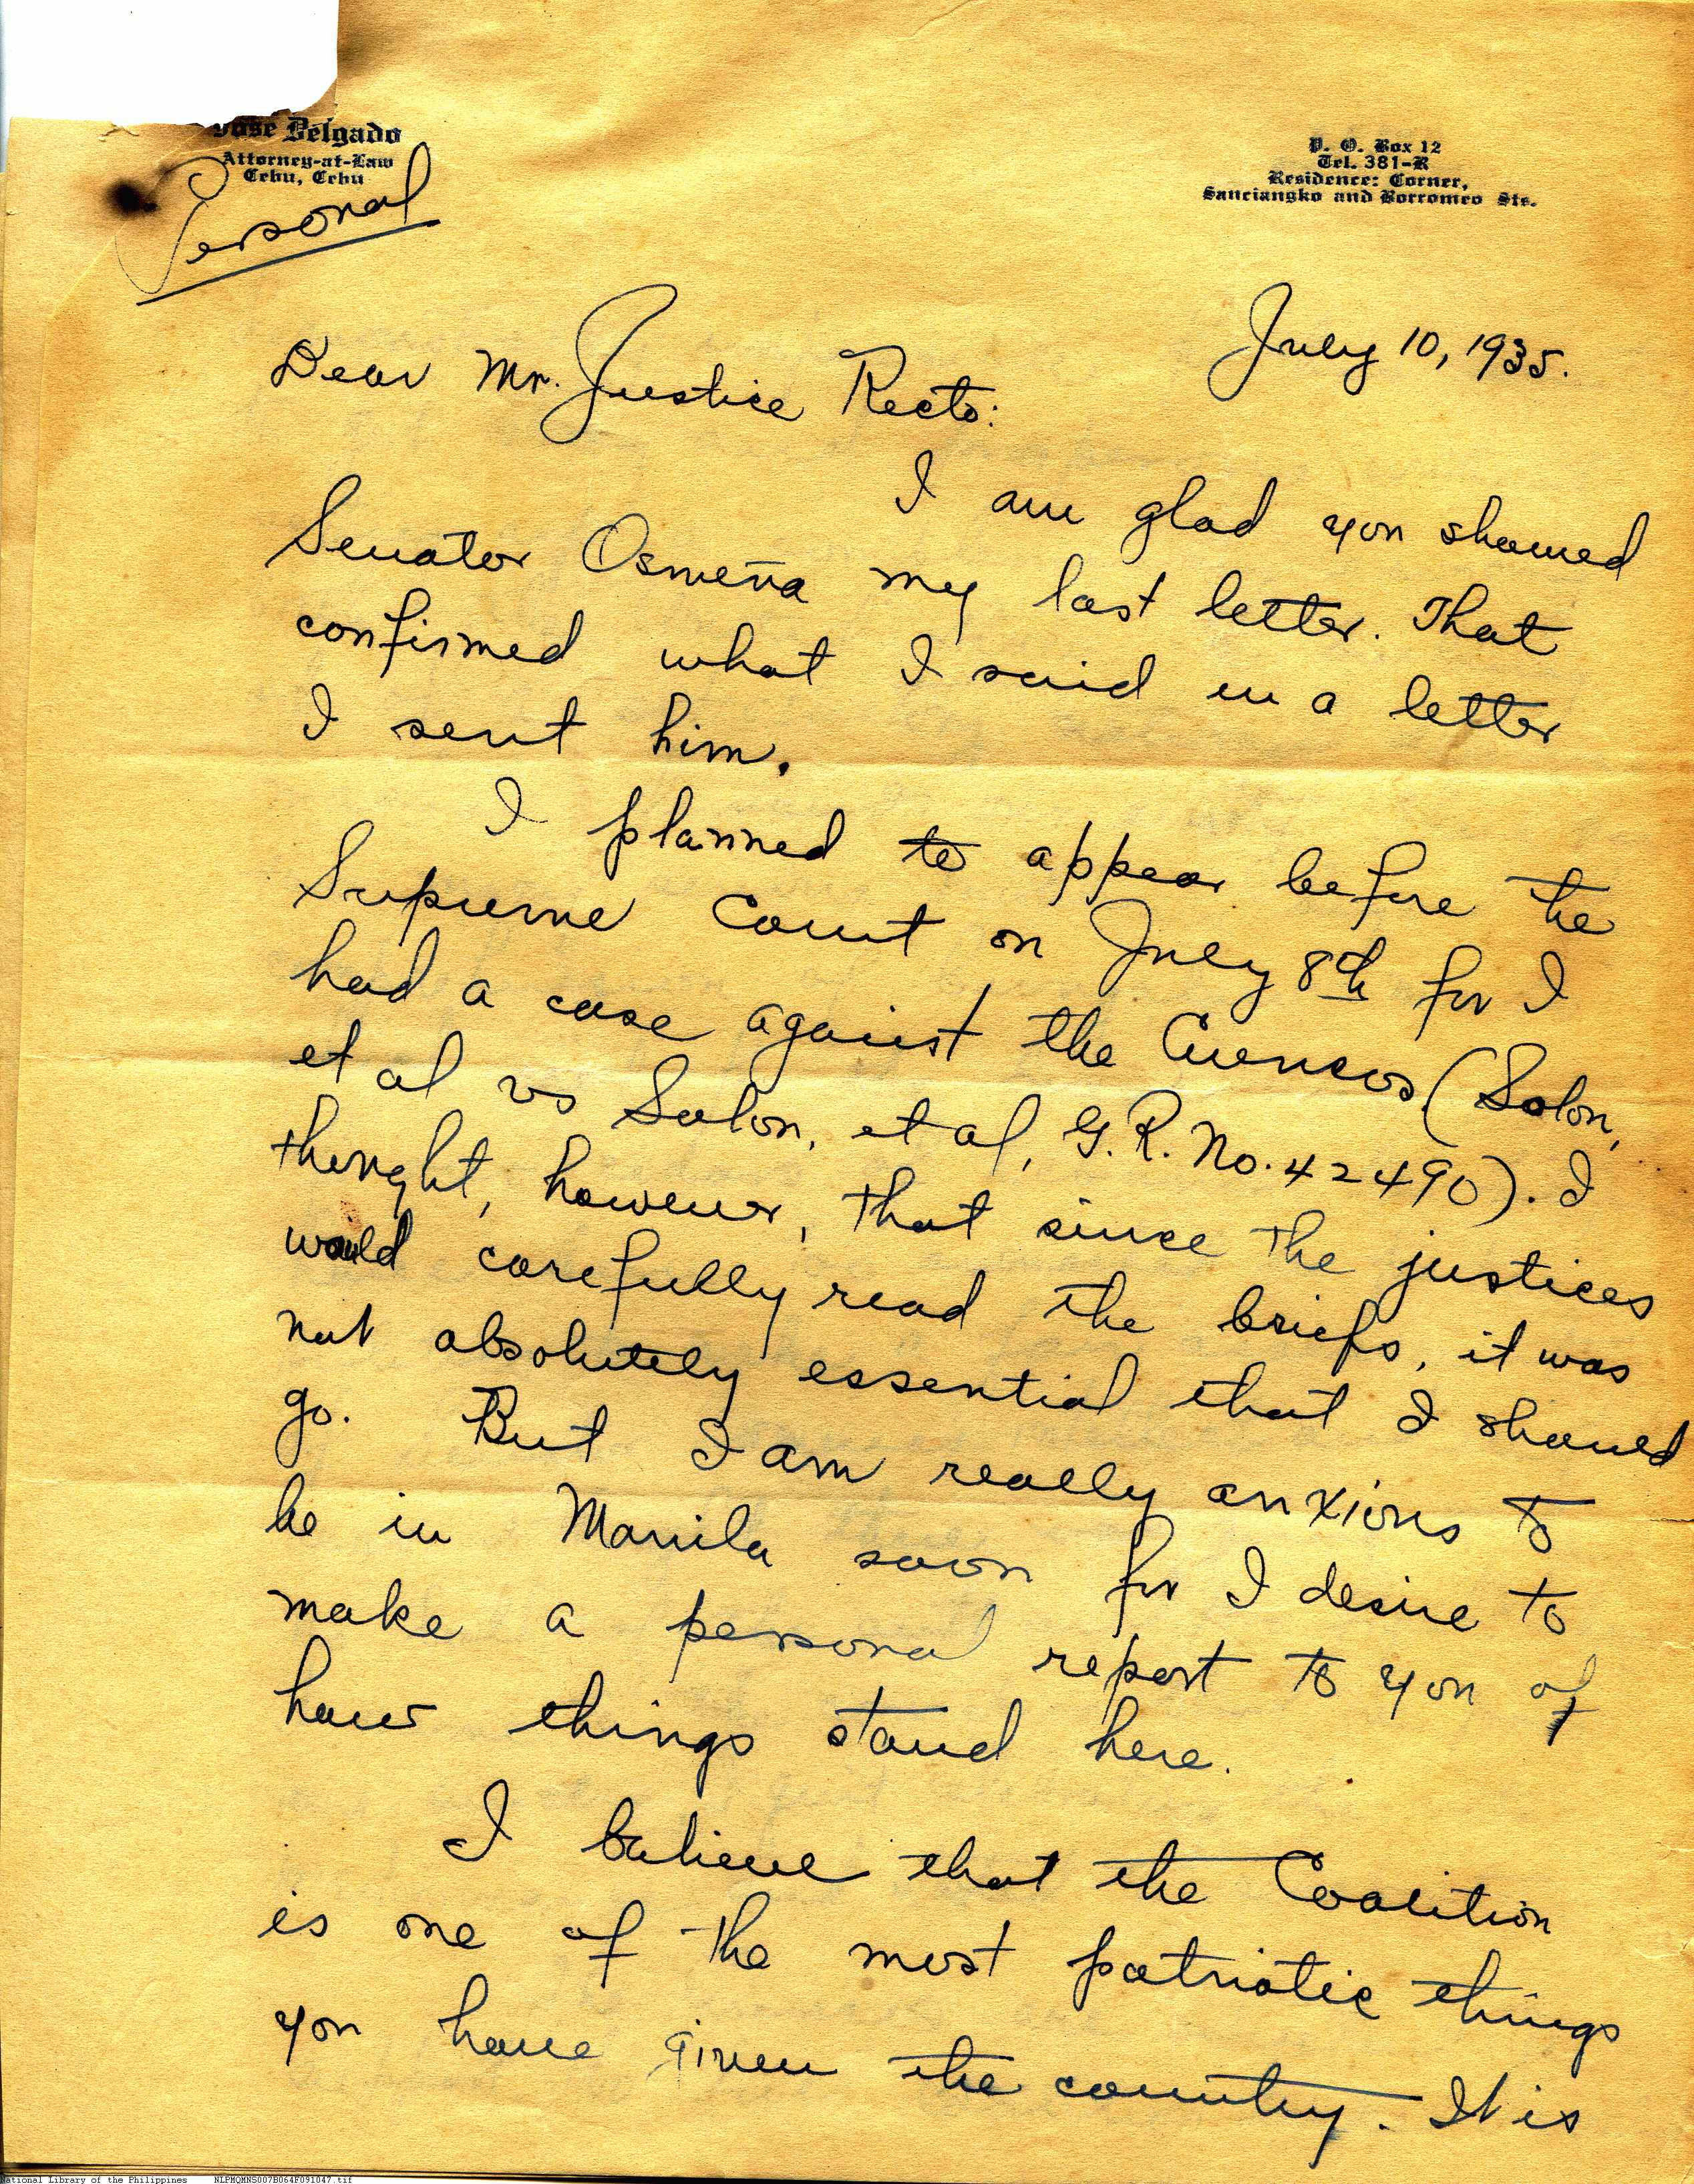 Jose Delgado
Attorney-at-Law
Cebu, Cebu
Personal
P. O. Box 12
Tel. 381-R
Residence: Corner,
Sanciangko and Borromeo Sts.
July 10, 1935.
Dear Mr. Justice Recto:
I am glad you showed
Senator Osmeña my last letter. That
confirmed what I said in a letter
I sent him.
I planned to appear before the
Supreme Court on July 8th for I
had a case against the Cuencos (Solon,
et al vs Solon, et al, G.R. No. 42490). I
thought, however, that since the justices
would carefully read the briefs, it was
not absolutely essential that I should
go. But I am really anxious to
be in Manila soon for I desire to
make a personal report to you of
how things stand here.
I believe that the Coalition
is one of the most patriotic things
you have given the country. It is
National Library of the Philippines NLPMQMNS007B064F091047.tif